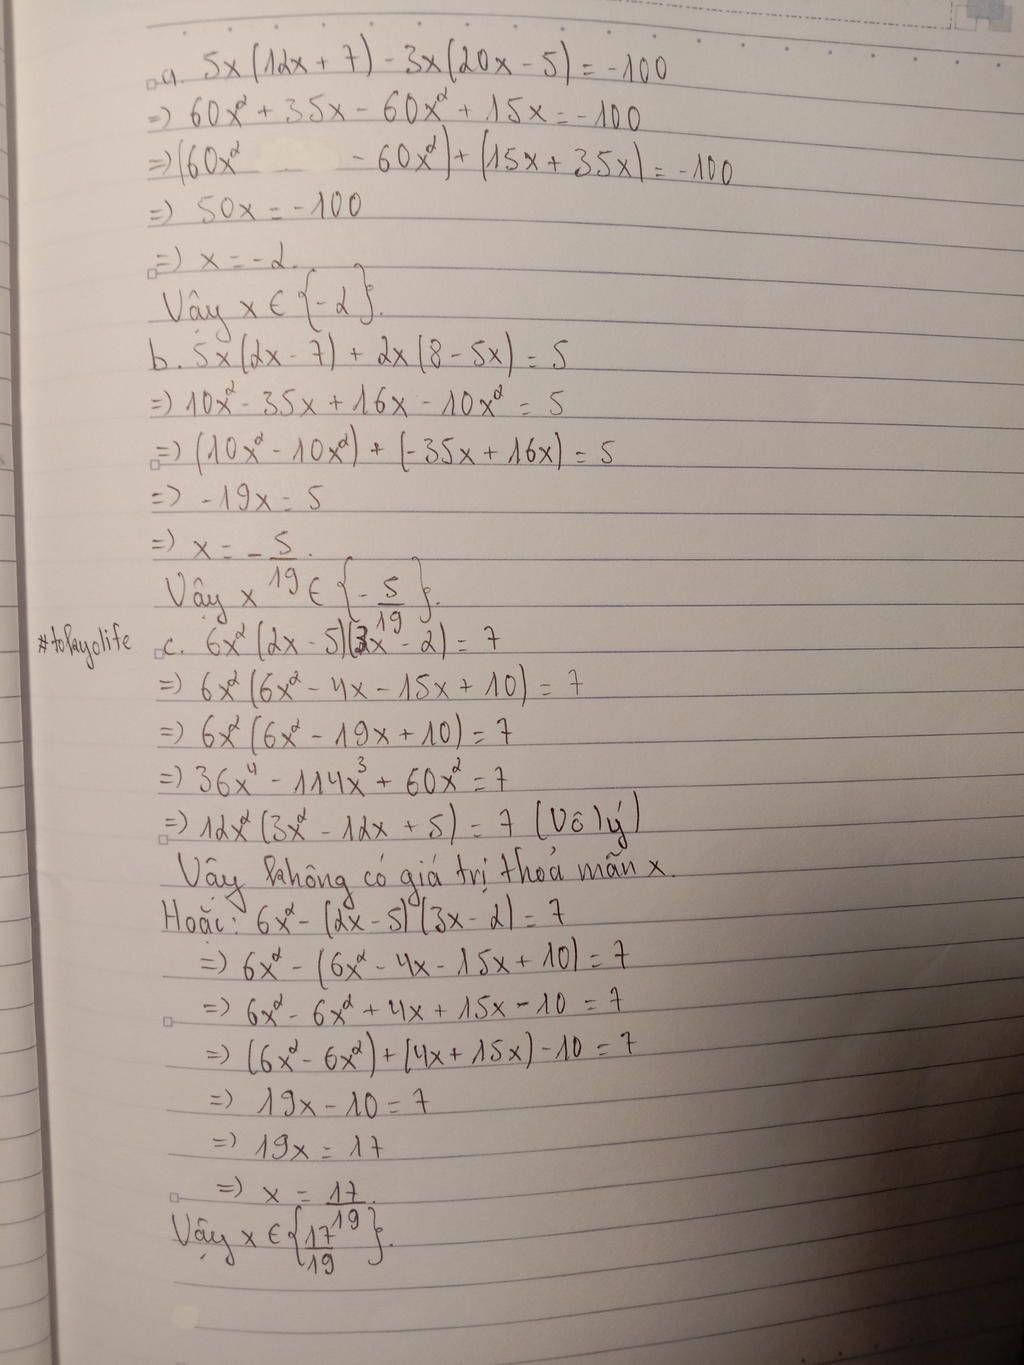 a. 5x(12x + 7) - 3x(20x - 5) = -100
=) 60x² + 35x - 60x² + 15x = -100
=) (60x² - 60x²) + (15x + 35x) = -100
=) 50x = -100
=) x = -2.
Vậy x ∈ {-2}.
b. 5x(2x - 7) + 2x(8 - 5x) = 5
=) 10x² - 35x + 16x - 10x² = 5
=) (10x² - 10x²) + (-35x + 16x) = 5
=) -19x = 5
=) x = -5/19.
Vậy x ∈ {-5/19}.
#toPayolife
c. 6x²(2x - 5)(3x - 2) = 7
=) 6x²(6x² - 4x - 15x + 10) = 7
=) 6x²(6x² - 19x + 10) = 7
=) 36x⁴ - 114x³ + 60x² = 7
=) 12x²(3x² - 12x + 5) = 7 (Vô lý)
Vậy không có giá trị thoả mãn x.
Hoặc: 6x² - (2x - 5)(3x - 2) = 7
=) 6x² - (6x² - 4x - 15x + 10) = 7
=) 6x² - 6x² + 4x + 15x - 10 = 7
=) (6x² - 6x²) + (4x + 15x) - 10 = 7
=) 19x - 10 = 7
=) 19x = 17
=) x = 17/19.
Vậy x ∈ {17/19}.